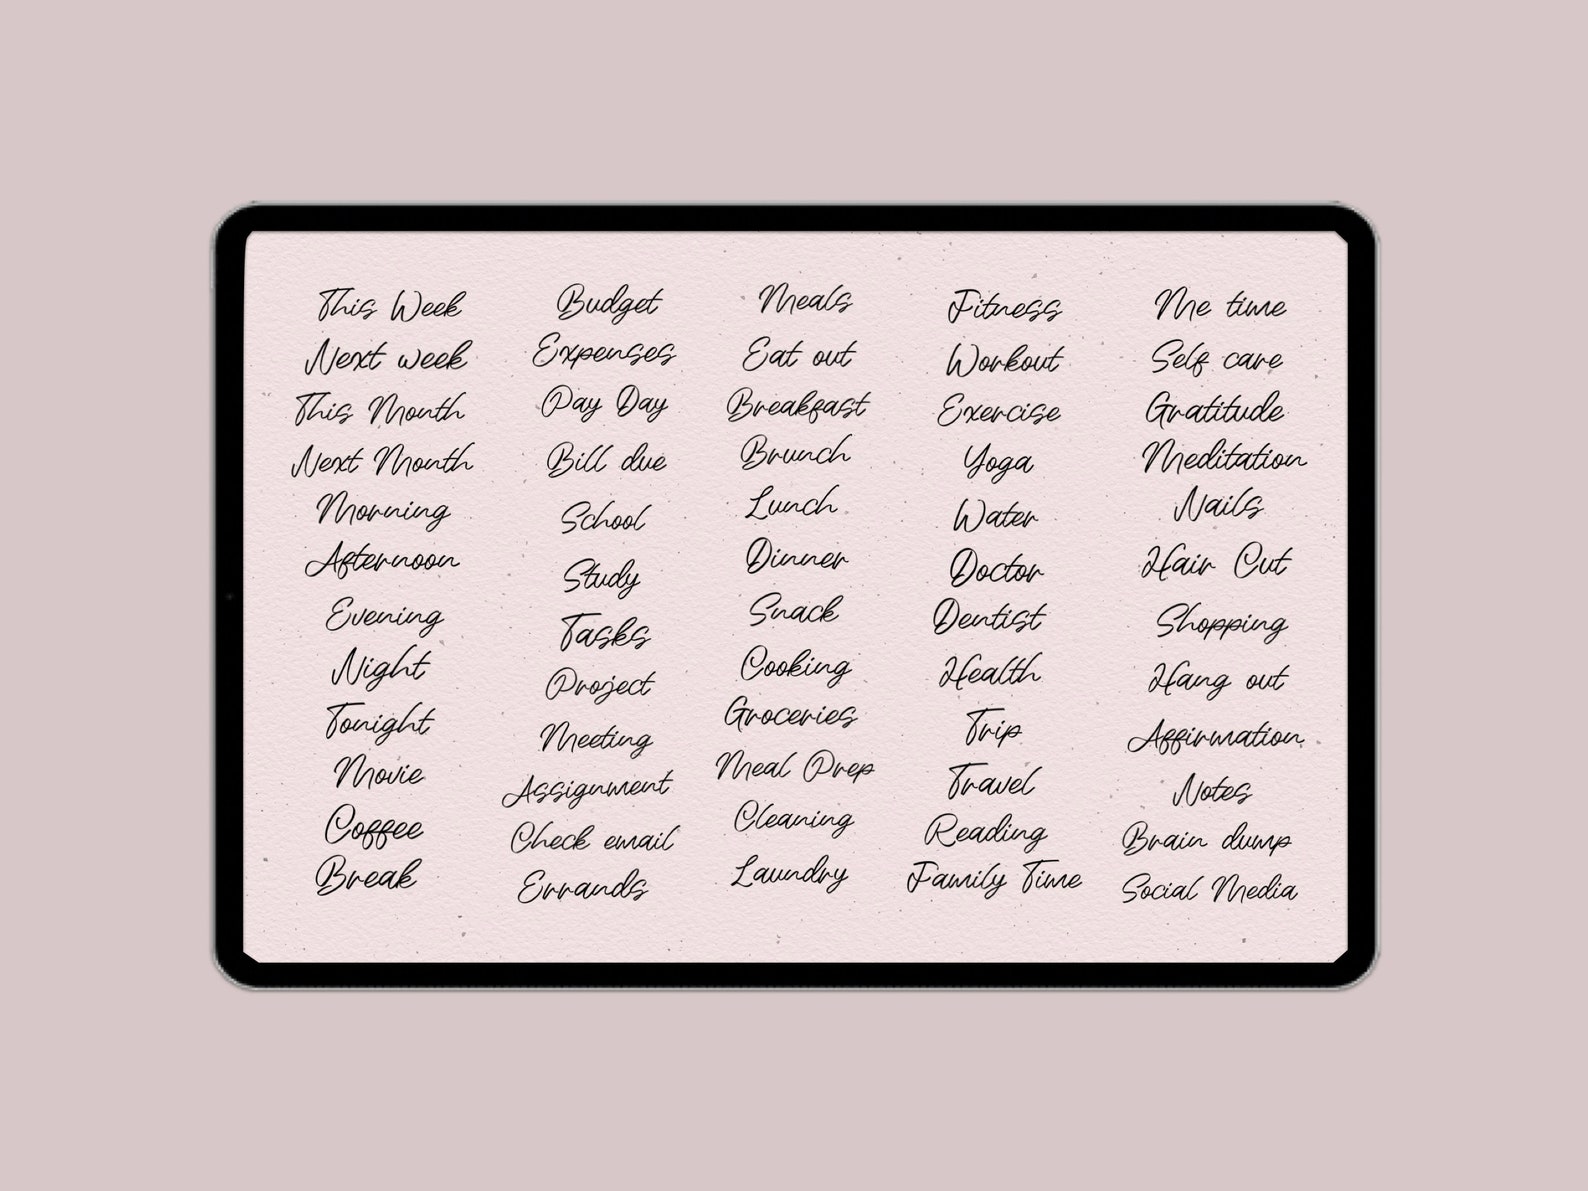 This Week
Next week
This Month
Next Month
Morning
Afternoon
Evening
Night
Tonight
Movie
Coffee
Break
Budget
Expenses
Pay Day
Bill due
School
Study
Tasks
Project
Meeting
Assignment
Check email
Errands
Meals
Eat out
Breakfast
Brunch
Lunch
Dinner
Snack
Cooking
Groceries
Meal Prep
Cleaning
Laundry
Fitness
Workout
Exercise
Yoga
Water
Doctor
Dentist
Health
Trip
Travel
Reading
Family Time
Me time
Self care
Gratitude
Meditation
Nails
Hair Cut
Shopping
Hang out
Affirmation
Notes
Brain dump
Social Media